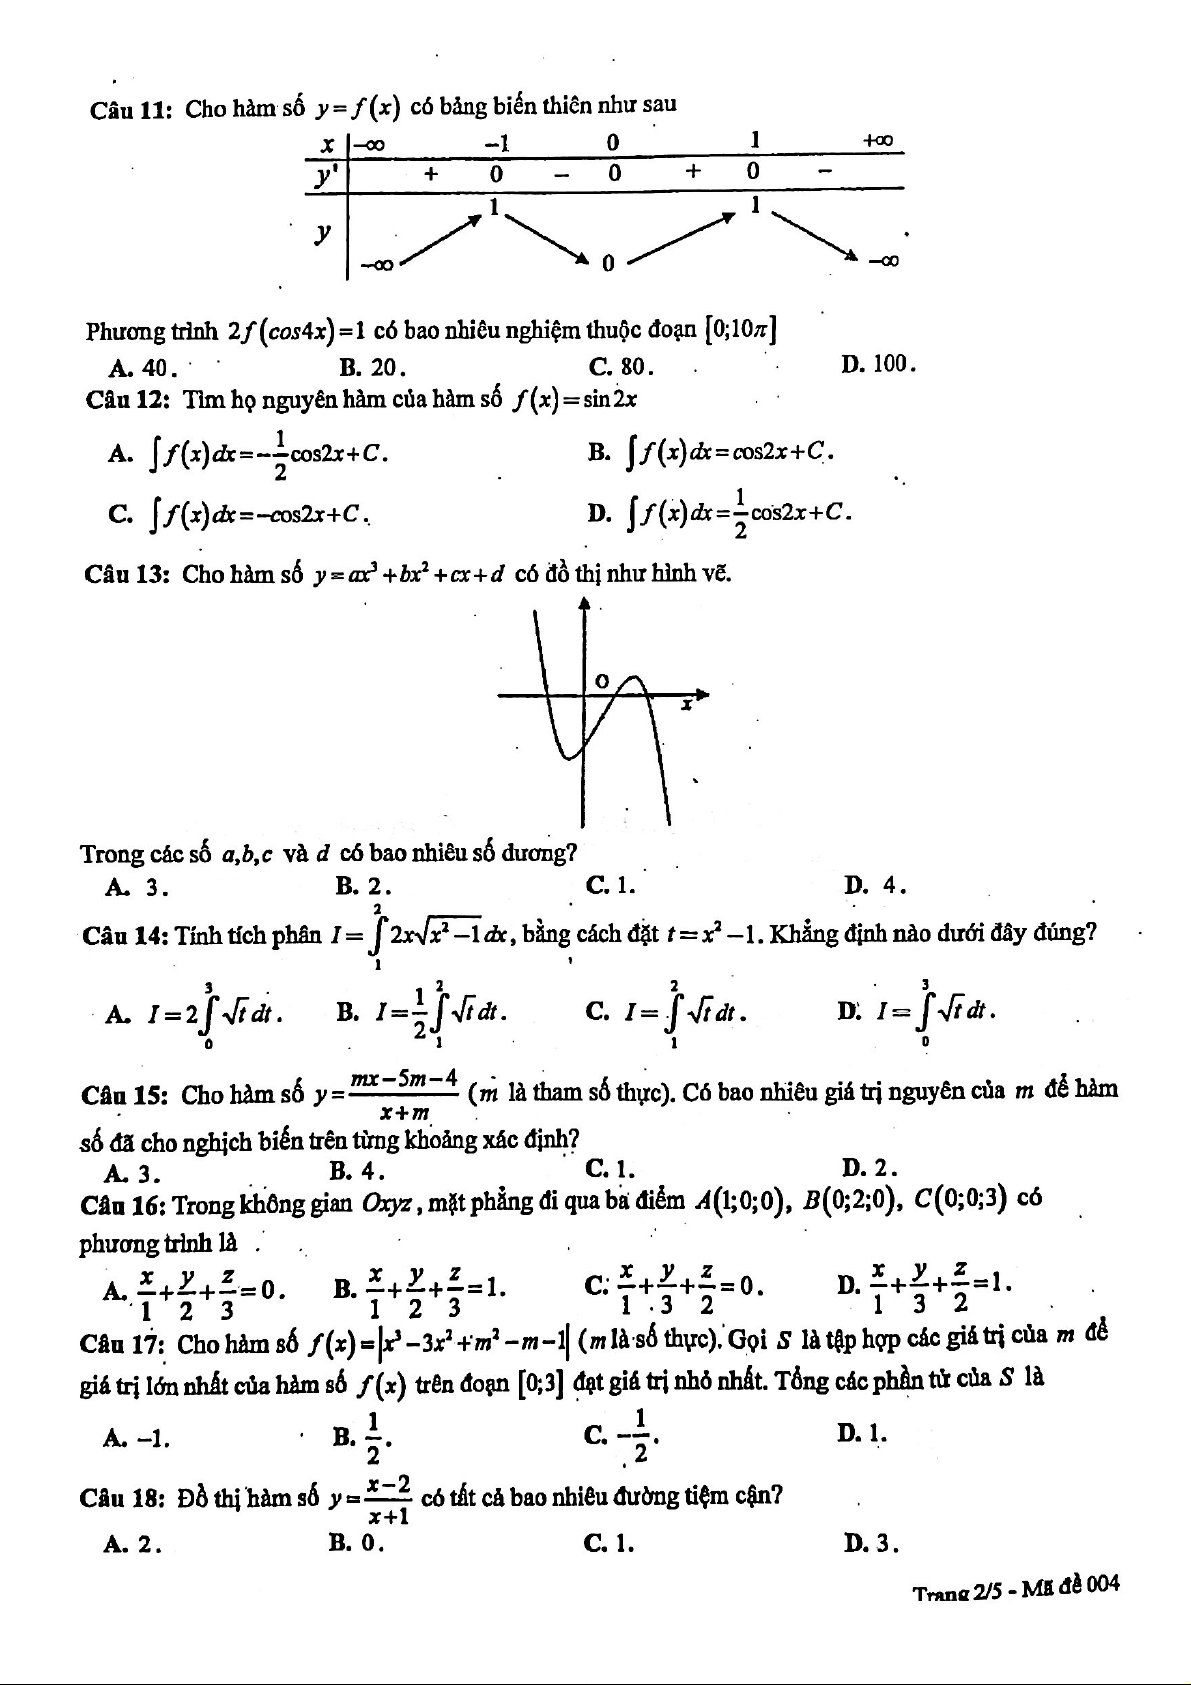 Câu 11: Cho hàm số y = f(x) có bảng biến thiên như sau
x −∞ −1 0 1 +∞
y' + 0 − 0 + 0 −
1 1
y
−∞ 0 −∞
Phương trình 2f(cos4x) = 1 có bao nhiêu nghiệm thuộc đoạn [0;10π]
A. 40. B. 20. C. 80. D. 100.
Câu 12: Tìm họ nguyên hàm của hàm số f(x) = sin2x
A. ∫f(x)dx = −1/2 cos2x + C. B. ∫f(x)dx = cos2x + C.
C. ∫f(x)dx = −cos2x + C. D. ∫f(x)dx = 1/2 cos2x + C.
Câu 13: Cho hàm số y = ax³ + bx² + cx + d có đồ thị như hình vẽ.
O
x
Trong các số a,b,c và d có bao nhiêu số dương?
A. 3. B. 2. C. 1. D. 4.
Câu 14: Tính tích phân I = ∫₁² 2x√(x² − 1) dx, bằng cách đặt t = x² − 1. Khẳng định nào dưới đây đúng?
A. I = 2∫₀³ √t dt. B. I = 1/2 ∫₁² √t dt. C. I = ∫₁² √t dt. D. I = ∫₀³ √t dt.
Câu 15: Cho hàm số y = (mx − 5m − 4)/(x + m) (m là tham số thực). Có bao nhiêu giá trị nguyên của m để hàm
số đã cho nghịch biến trên từng khoảng xác định?
A. 3. B. 4. C. 1. D. 2.
Câu 16: Trong không gian Oxyz, mặt phẳng đi qua ba điểm A(1;0;0), B(0;2;0), C(0;0;3) có
phương trình là
A. x/1 + y/2 + z/3 = 0. B. x/1 + y/2 + z/3 = 1. C. x/1 + y/3 + z/2 = 0. D. x/1 + y/3 + z/2 = 1.
Câu 17: Cho hàm số f(x) = |x³ − 3x² + m² − m − 1| (m là số thực). Gọi S là tập hợp các giá trị của m để
giá trị lớn nhất của hàm số f(x) trên đoạn [0;3] đạt giá trị nhỏ nhất. Tổng các phần tử của S là
A. −1. B. 1/2. C. −1/2. D. 1.
Câu 18: Đồ thị hàm số y = (x−2)/(x+1) có tất cả bao nhiêu đường tiệm cận?
A. 2. B. 0. C. 1. D. 3.
Trang 2/5 - Mã đề 004